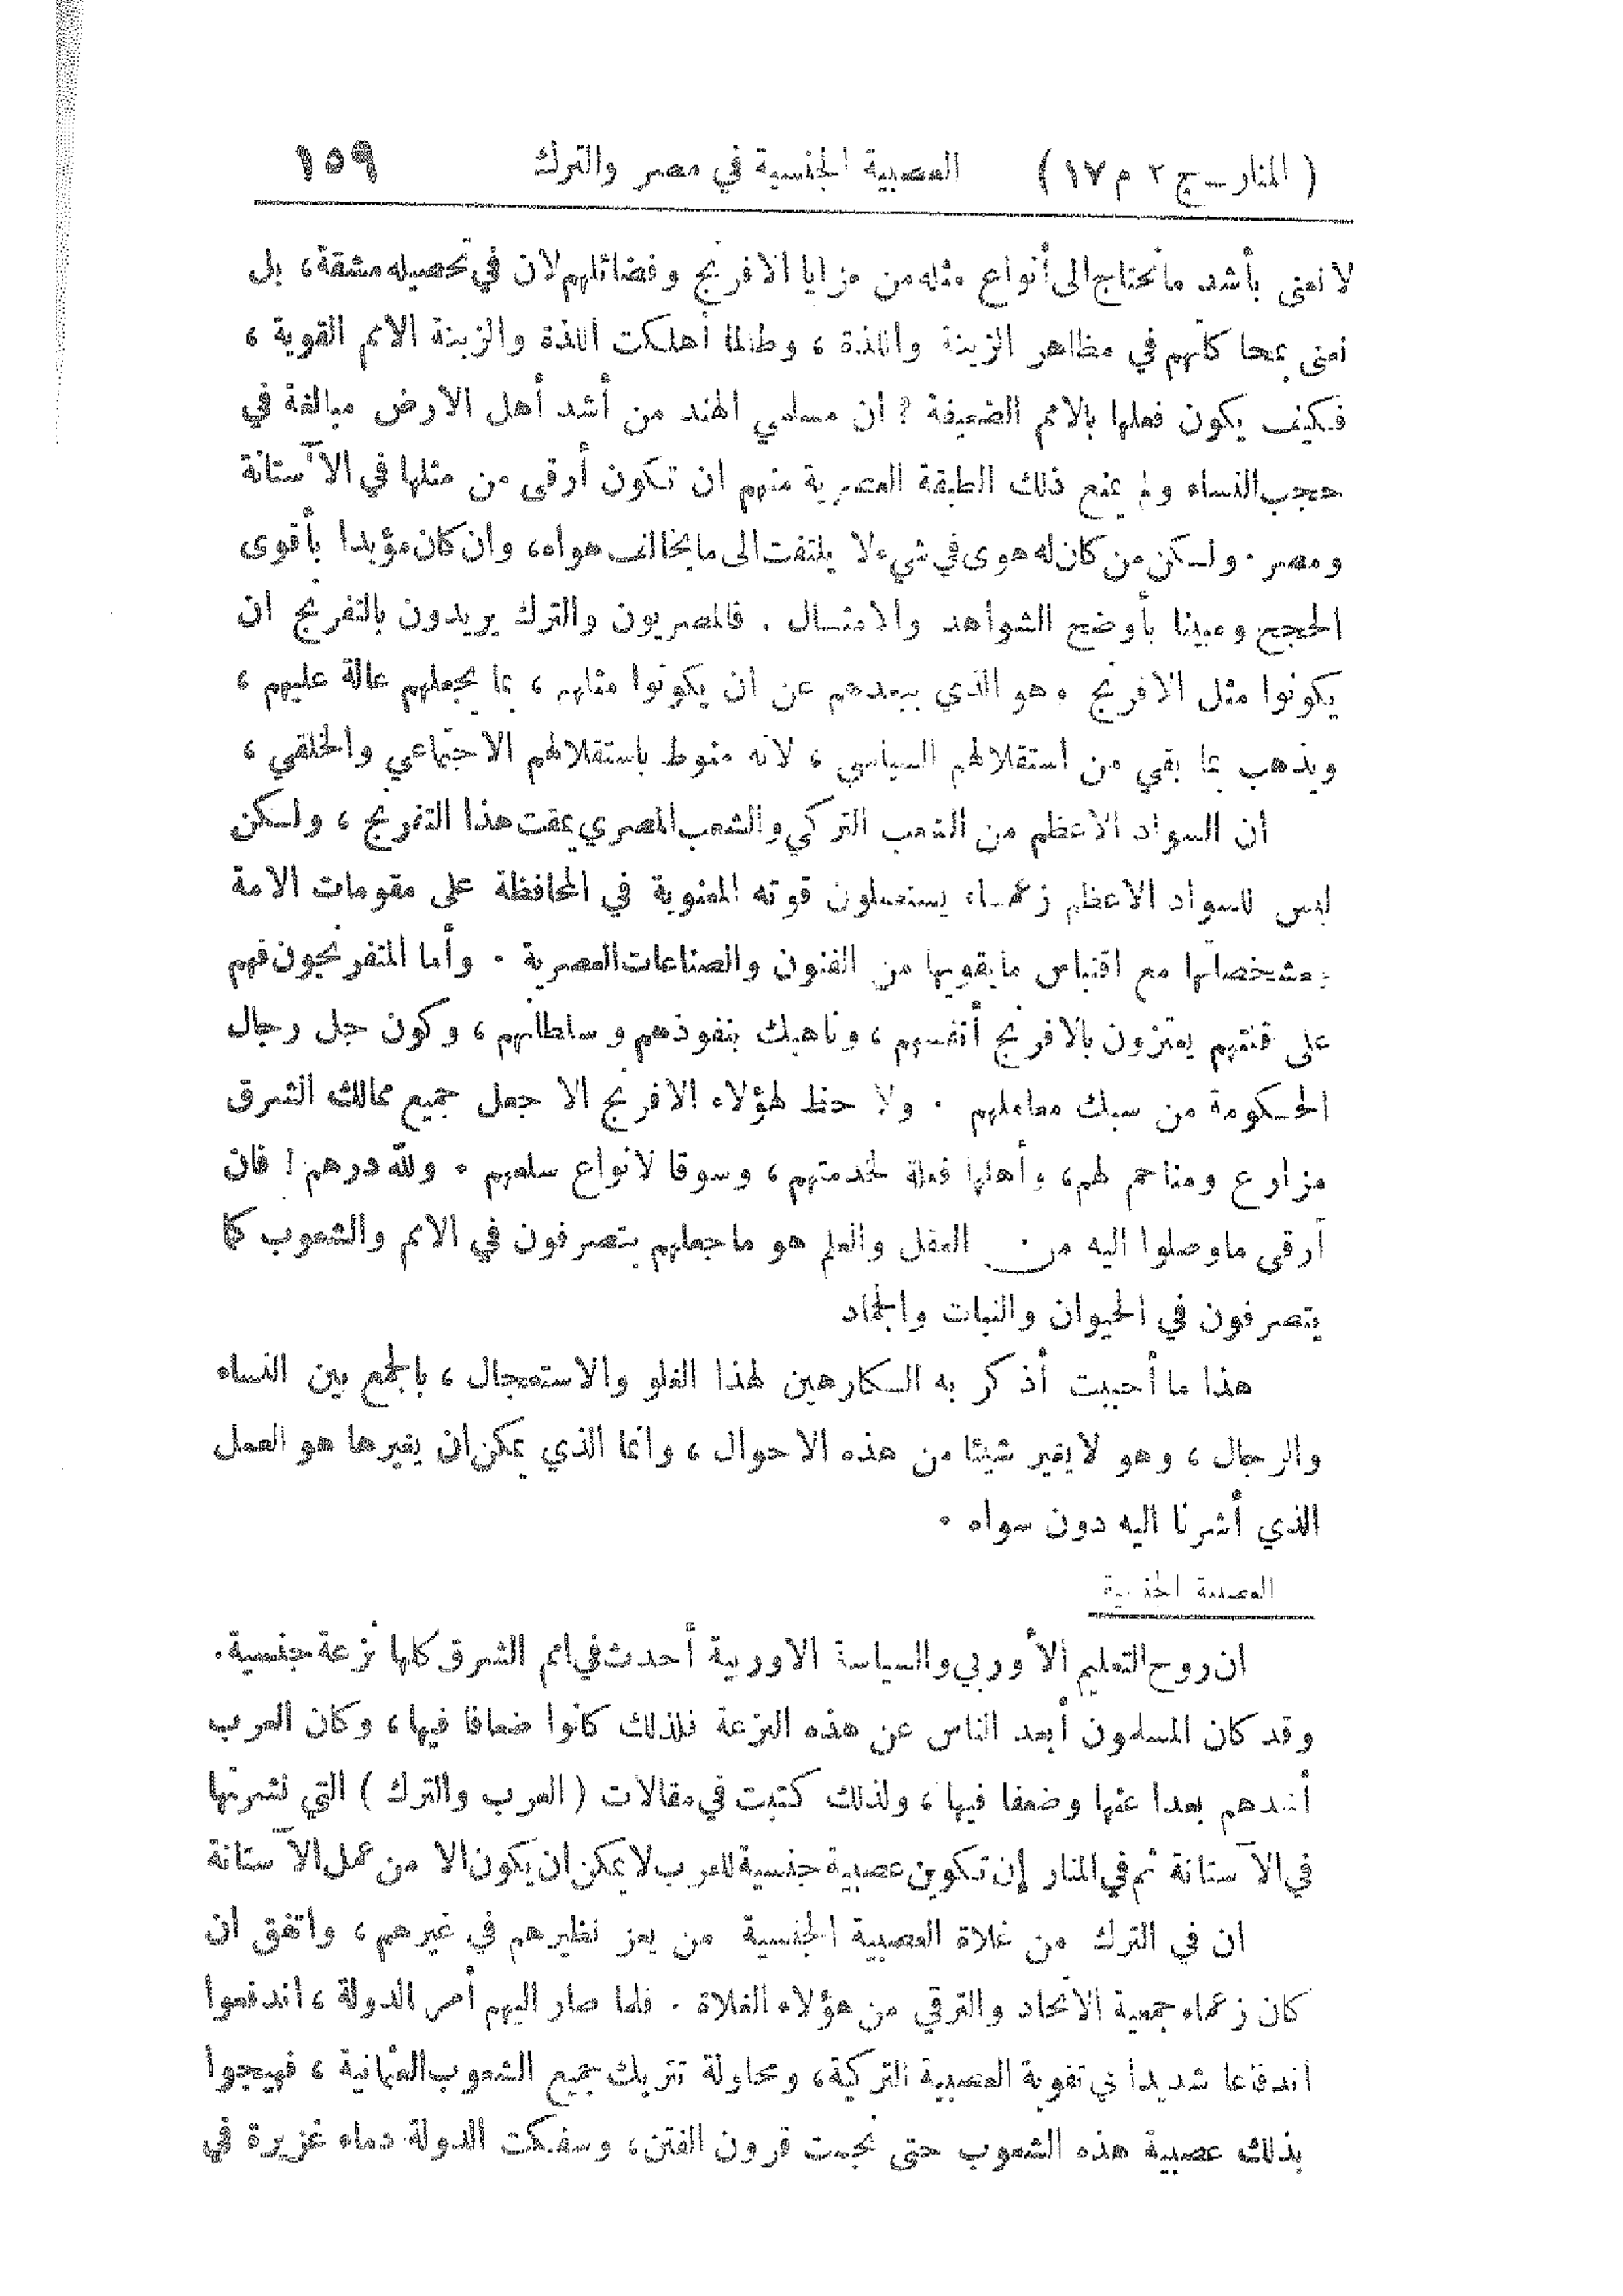 ( المنار ــ ج ٢ م ١٧ ) العصبية الجنسية في مصر والترك ١٥٩
لا نعنى بأشد ما نحتاج الى أنواع مثله من مزايا الافرنج وفضائلهم لان في تحصيله مشقة، بل
نعنى بمحاكاتهم في مظاهر الزينة واللذة ، وطالما أهلكت اللذة والزينة الامم القوية ،
فكيف يكون فعلها بالامم الضعيفة ? ان مسلمي الهند من أشد أهل الارض مبالغة في
حجب النساء ولم يمنع ذلك الطبقة العصرية منهم ان تكون أرقى من مثلها في الآستانة
ومصر . ولكن من كان له هوى في شيء لا يلتفت الى ما يخالف هواه، وان كان مؤيدا بأقوى
الحجج ومبينا بأوضح الشواهد والامثال . فالمصريون والترك يريدون بالتفرنج ان
يكونوا مثل الافرنج وهو الذي يبعدهم عن ان يكونوا مثلهم ، بما يجعلهم عالة عليهم ،
ويذهب بما بقي من استقلالهم السياسي ، لانه منوط باستقلالهم الاجتماعي والخلقي ،
ان السواد الاعظم من الشعب التركي والشعب المصري يمقت هذا التفرنج ، ولكن
ليس للسواد الاعظم زعماء يستعملون قوته المعنوية في المحافظة على مقومات الامة
ومشخصاتها مع اقتباس ما يقويها من الفنون والصناعات العصرية . وأما المتفرنجون فهم
على قلتهم يعتزون بالافرنج أنفسهم ، وناهيك بنفوذهم وسلطانهم ، وكون جل رجال
الحكومة من سبك معاملهم . ولا حظ لهؤلاء الافرنج الا جعل جميع ممالك الشرق
مزارع ومناجم لهم، وأهلها فعلة لخدمتهم ، وسوقا لانواع سلعهم . ولله درهم ! فان
أرقى ما وصلوا اليه من العقل والعلم هو ما جعلهم يتصرفون في الامم والشعوب كما
يتصرفون في الحيوان والنبات والجماد
هذا ما أحببت أذكر به الكارهين لهذا الغلو والاستعجال ، بالجمع بين النساء
والرجال ، وهو لا يغير شيئا من هذه الاحوال ، وانما الذي يمكن ان يغيرها هو العمل
الذي أشرنا اليه دون سواه .
العصبية الجنسية
ان روح التعليم الأوربي والسياسة الاوربية أحدث في امم الشرق كلها نزعة جنسية.
وقد كان المسلمون أبعد الناس عن هذه النزعة فلذلك كانوا ضعافا فيها ، وكان العرب
أشدهم بعدا عنها وضعفا فيها ، ولذلك كتبت في مقالات ( العرب والترك ) التي نشرتها
في الآستانة ثم في المنار إن تكوين عصبية جنسية للعرب لا يمكن ان يكون الا من عمل الآستانة
ان في الترك من غلاة العصبية الجنسية من يعز نظيرهم في غيرهم ، واتفق ان
كان زعماء جمعية الاتحاد والترقي من هؤلاء الغلاة . فلما صار اليهم أمر الدولة ، اندفعوا
اندفاعا شديدا في تقوية العصبية التركية، ومحاولة تتريك جميع الشعوب العثمانية ، فهيجوا
بذلك عصبية هذه الشعوب حتى نجمت قرون الفتن، وسفكت الدولة دماء غزيرة في